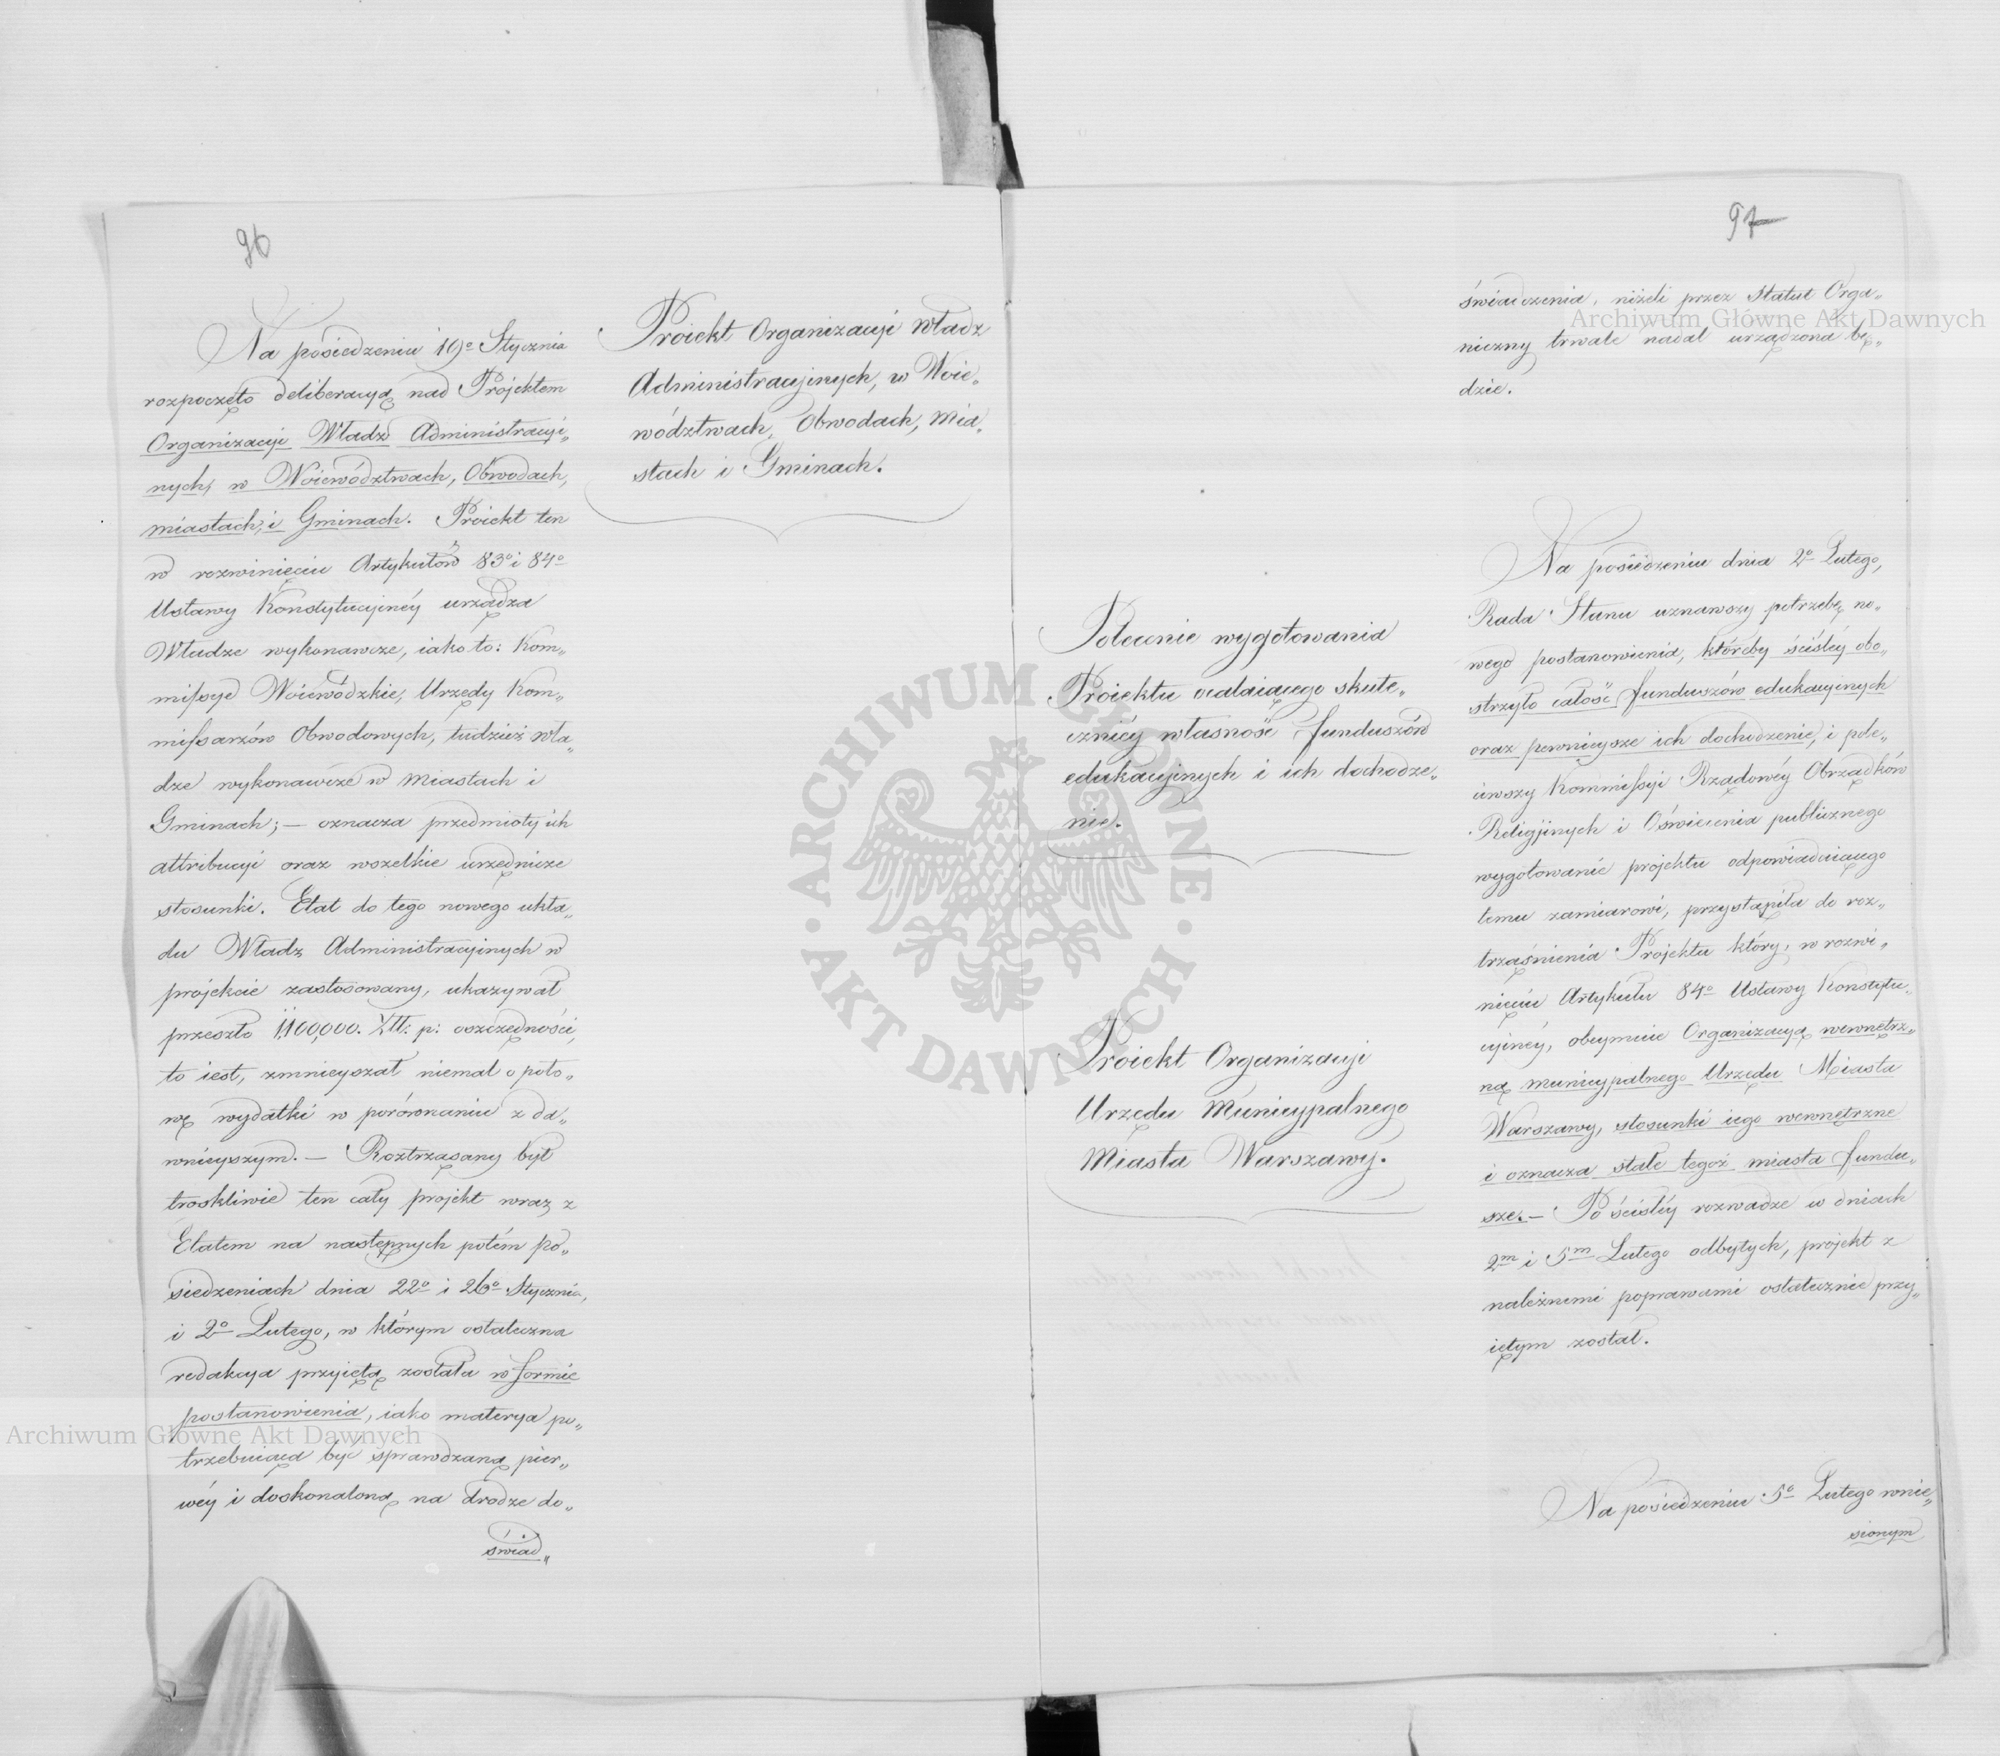 96
Na posiedzeniu 19º Stycznia
rozpoczęto deliberacyą nad Projektem
Organizacyi Władz Administracyi„
nych, w Woiewództwach, Obwodach,
miastach, i Gminach. Proiekt ten
w rozwinięciu Artykułów 83º i 84º
Ustawy Konstytucyinéy urządza
Władze wykonawcze, iako to: Kom„
missye Woiewódzkie, Urzędy Kom„
missarzów Obwodowych, tudzież wła„
dze wykonawcze w Miastach i
Gminach; — oznacza przedmioty ich
attribucyi oraz wszelkie urzędnicze
stosunki. Etat do tego nowego ukła„
du Władz Administracyinych w
projekcie zastosowany, ukazywał
przeszło 1,100,000. Złł: p: oszczędności,
to iest, zmnieyszał niemal o poło„
wę wydatki w porównaniu z da„
wnieyszym. — Roztrząsany był
troskliwie ten cały projekt wraz z
Etatem na następnych potém po„
siedzeniach dnia 22º i 26º Stycznia,
i 2º Lutego, w którym ostateczna
redakcya przyiętą została w formie
postanowienia, iako materya po„
trzebuiąca być sprawdzaną pier„
wéy i doskonaloną na drodze do„
świad„
Proiekt Organizacyi Władz
Administracyinych, w Woie„
wództwach, Obwodach, Mia„
stach i Gminach.
97
świadczenia, niżeli przez Statut Orga„
niczny trwale nadal urządzona bę„
dzie.
Polecenie wygotowania
Proiektu ocalaiącego skute„
cznéy własność funduszów
edukacyinych i ich dochodze„
nie.
Na posiedzeniu dnia 2º Lutego,
Rada Stanu uznawszy potrzebę no„
wego postanowienia, któreby ściśléy obo„
strzyło całość funduszów edukacyinych
oraz pewnieysze ich dochodzenie, i pole„
ciwszy Kommissyi Rządowéy Obrządków
Religijnych i Oświecenia publicznego
wygotowanie projektu odpowiadaiącego
temu zamiarowi, przystąpiła do roz„
trząśnienia Projektu który, w rozwi„
nięciu Artykułu 84º Ustawy Konstytu„
cyinéy, obeymuie Organizacyą wewnętrz„
ną municypalnego Urzędu Miasta
Warszawy, stosunki iego wewnętrzne
i oznacza stałe tegoż miasta fundu„
sze. — Po ściśléy rozwadze w dniach
2m i 5m Lutego odbytych, projekt z
należnemi poprawami ostatecznie przy„
iętym został.
Proiekt Organizacyi
Urzędu Municypalnego
Miasta Warszawy.
Na posiedzeniu 5º Lutego wnie„
sionym
Archiwum Główne Akt Dawnych
Archiwum Główne Akt Dawnych
ARCHIWUM GŁÓWNE · AKT DAWNYCH ·